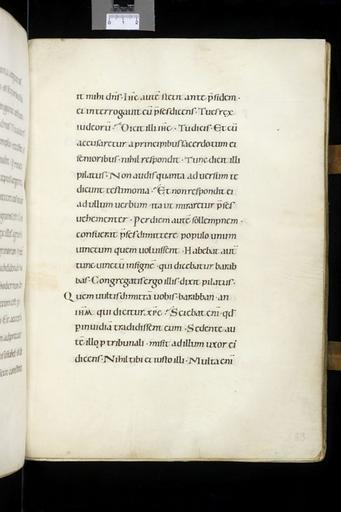 it mihi dn̄s · Iħc autē stetit ante p̄sidem ·
et interrogauit eū p̄ses dicens · Tu es rex
iudeorū · Dicit illi iħc · Tu dicis · Et cū
accusaretur a principibus sacerdotum et
senioribus · nihil respondit · Tunc dicit illi
pilatus · Non audis quanta aduersum te
dicunt testimonia · Et non respondit ei
ad ullum uerbum · ita ut miraretur p̄ses
uehementer · Per diem autē sollempnem ·
consueuit p̄ses dimittere populo unum
uinctum quem uoluissent · Habebat aut̄
tunc uinctū insignē · qui dicebatur barab
bas · Congregatis ergo illis dixit pilatus ·
Quem uultis dimittā uobis · barabban · an
iħm · qui dicitur xp̄c · Sciebat eni · qd̄
p inuidia tradidissent eum · Sedente au
tē illo p tribunali · misit ad illum uxor ei
dicens · Nihil tibi et iusto illi · Multa eni